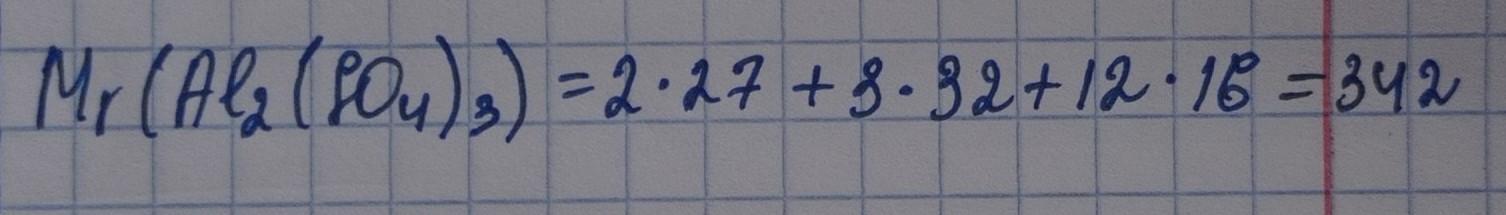 Mr(Al₂(SO₄)₃) = 2·27 + 3·32 + 12·16 = 342